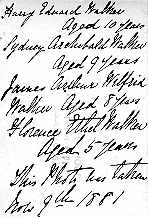 Harry Edward Walker
Aged 10 years
Sydney Archibald Walker
Aged 9 years
James Arthur Wilfrid
Walker Aged 8 years
Florence Ethel Walker
Aged 5 years
This Photo was taken
Nov 9th 1881